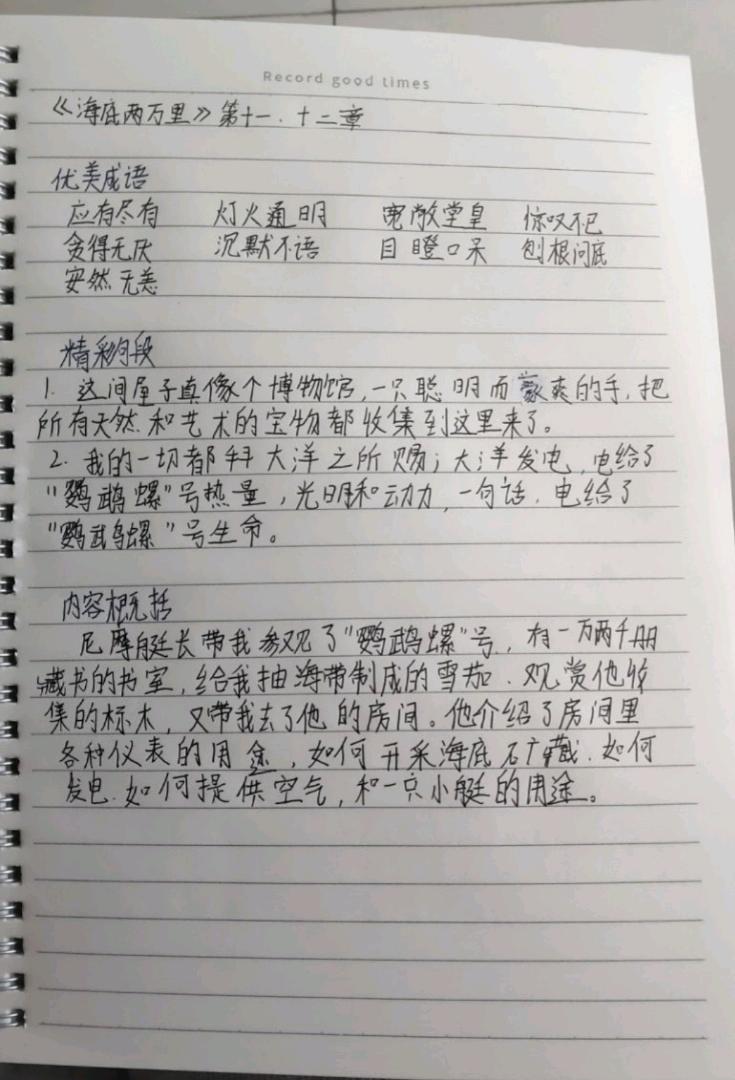 Record good times
《海底两万里》第十一.十二章
优美成语
应有尽有 灯火通明 宽敞堂皇 惊叹不已
贪得无厌 沉默不语 目瞪口呆 刨根问底
安然无恙
精彩句段
1. 这间屋子真像个博物馆,一只聪明而豪爽的手,把
所有天然和艺术的宝物都收集到这里来了。
2. 我的一切都拜大洋之所赐;大洋发电,电给了
“鹦鹉螺”号热量,光明和动力,一句话.电给了
“鹦鹉螺”号生命。
内容概括
尼摩艇长带我参观了“鹦鹉螺”号,有一万两千册
藏书的书室,给我抽海带制成的雪茄.观赏他收
集的标木,又带我去了他的房间。他介绍了房间里
各种仪表的用途,如何开采海底矿藏.如何
发电.如何提供空气,和一只小艇的用途。